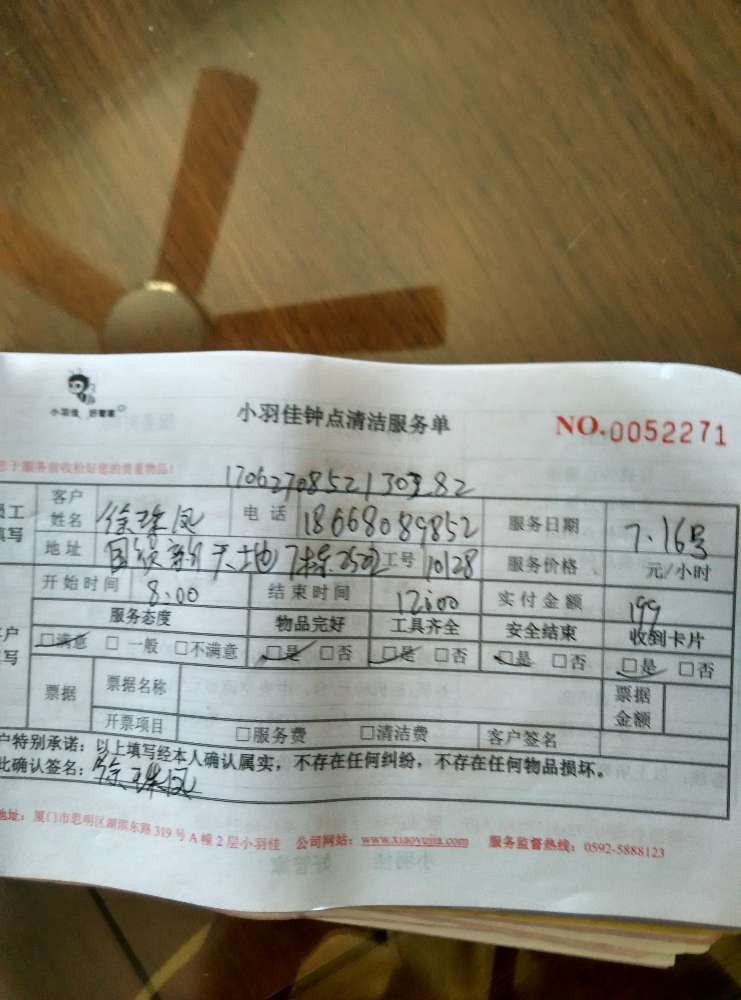 小羽佳 好管家
小羽佳钟点清洁服务单
NO.0052271
于服务前收拾好您的贵重物品!
员工填写
客户姓名 徐珠凤 电话 18668089852 服务日期 7.16号
地址 国缤新天地7栋2502 工号 10128 服务价格 元/小时
开始时间 8:00 结束时间 12:00 实付金额 199
服务态度 物品完好 工具齐全 安全结束 收到卡片
□满意 □一般 □不满意 □是 □否 □是 □否 □是 □否 □是 □否
票据 票据名称 票据金额
开票项目 □服务费 □清洁费 客户签名
户特别承诺:以上填写经本人确认属实,不存在任何纠纷,不存在任何物品损坏。
此确认签名:徐珠凤
地址:厦门市思明区湖滨东路319号A幢2层小羽佳 公司网站:www.xiaoyujia.com 服务监督热线:0592-5888123